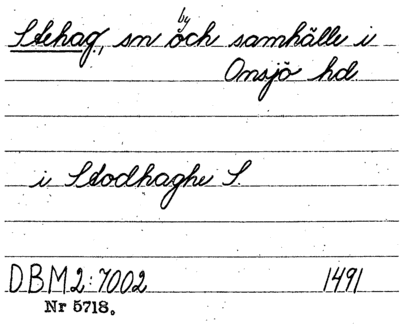 Stehag, sn by och samhälle i
Onsjö hd.
i Stodhaghe S.
DBM2:7002 1491
Nr 5718.